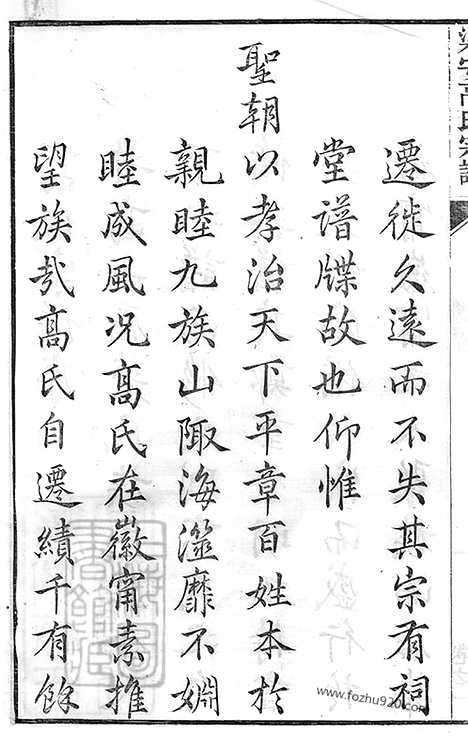 遷徙久遠而不失其宗有祠
堂譜牒故也仰惟
聖朝以孝治天下平章百姓本於
親睦九族山陬海澨靡不婣
睦成風况髙氏在徽甯素推
望族哉髙氏自遷績千有餘
www.fozhu920.com